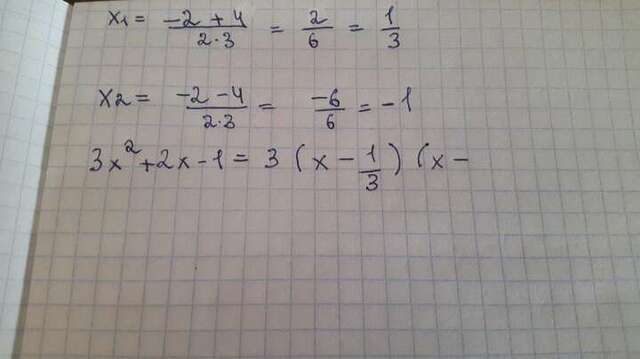 x1 = (-2 + 4)/(2·3) = 2/6 = 1/3
x2 = (-2 - 4)/(2·3) = -6/6 = -1
3x² + 2x - 1 = 3 (x - 1/3) (x -